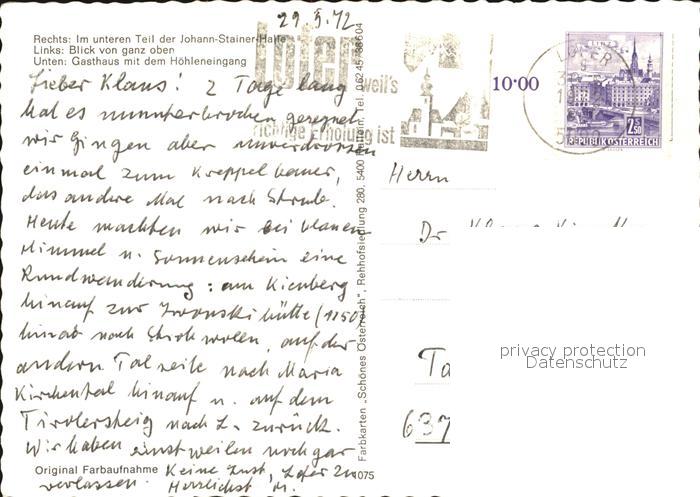 29.5.72
Rechts: Im unteren Teil der Johann-Stainer-Halle
Links: Blick von ganz oben
Unten: Gasthaus mit dem Höhleneingang
Lofer
weil's
richtige Erholung ist
10·00
LOFER
2.50
REPUBLIK ÖSTERREICH
Lieber Klaus! 2 Tage lang
hat es ununterbrochen geregnet
wir gingen aber unverdrossen
einmal zum Kreppelbauer,
das andere Mal nach Strub.
Heute machten wir bei blauem
Himmel u. Sonnenschein eine
Rundwanderung: am Kienberg
hinauf zur hütte (1150)
hinab nach wollen, auf der
andern Talseite nach Maria
Kirchental hinauf u. auf dem
Tirolersteig nach L. zurück.
Wir haben einstweilen noch gar
Keine Lust, Lofer zu
verlassen. Herzlichst
Original Farbaufnahme
075
Farbkarten „Schönes Österreich", Rehhofsiedlung 280, 5400 Hallein, Tel. 06245/38604
Herrn
Dr.
Ta
637
privacy protection
Datenschutz